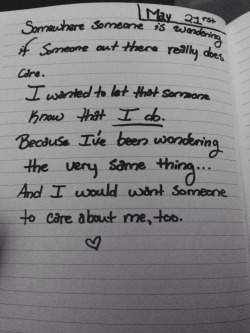 May 21rst
Somewhere someone is wondering
if someone out there really does
care.
I wanted to let that someone
know that I do.
Because I've been wondering
the very same thing...
And I would want someone
to care about me, too.
♡